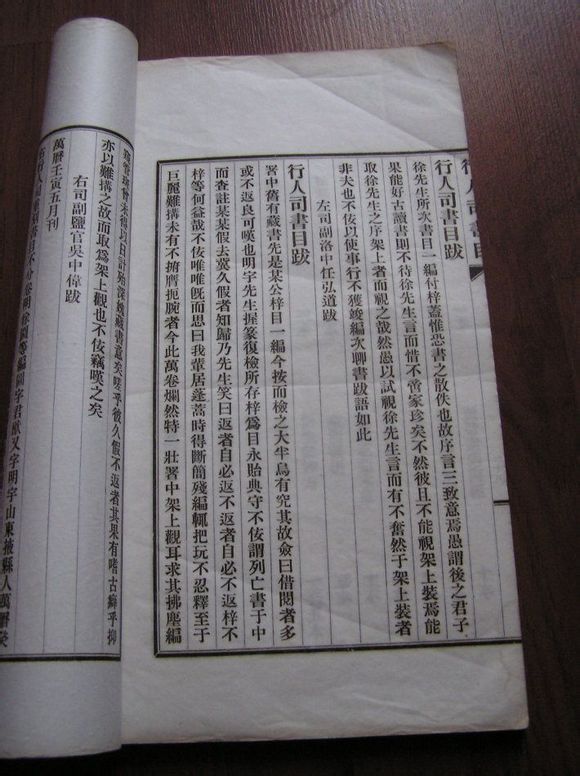 行人司書目
行人司書目跋
徐先生所次書目一編付梓蓋惟恐書之散佚也故序言三致意焉愚謂後之君子
果能好古讀書則不待徐先生言而惜不啻家珍矣不然彼且不能視架上裝焉能
取徐先生之序架上者而視之哉然愚以試視徐先生言而有不奮然于架上裝者
非夫也不佞以使事行不獲竣編次聊書跋語如此
左司副洛中任弘道跋
行人司書目跋
署中舊有藏書先是某公梓目一編今按而檢之大半烏有究其故僉曰借閱者多
或不返良可嘆也明宇先生握篆復檢所存梓爲目永貽典守不佞謂列亡書于中
而查註某某假去冀久假者知歸乃先生笑曰返者自必返不返者自必不返梓不
梓等何益哉不佞唯唯既而思曰我輩居蓬蒿時得斷簡殘編輒把玩不忍釋至于
巨麗難搆未有不捬膺扼腕者今此萬卷爛然特一壯署中架上觀耳求其拂塵編
亦以難搆之故而取爲架上觀也不佞竊嘆之矣
右司副鹽官吳中偉跋
萬曆壬寅五月刊